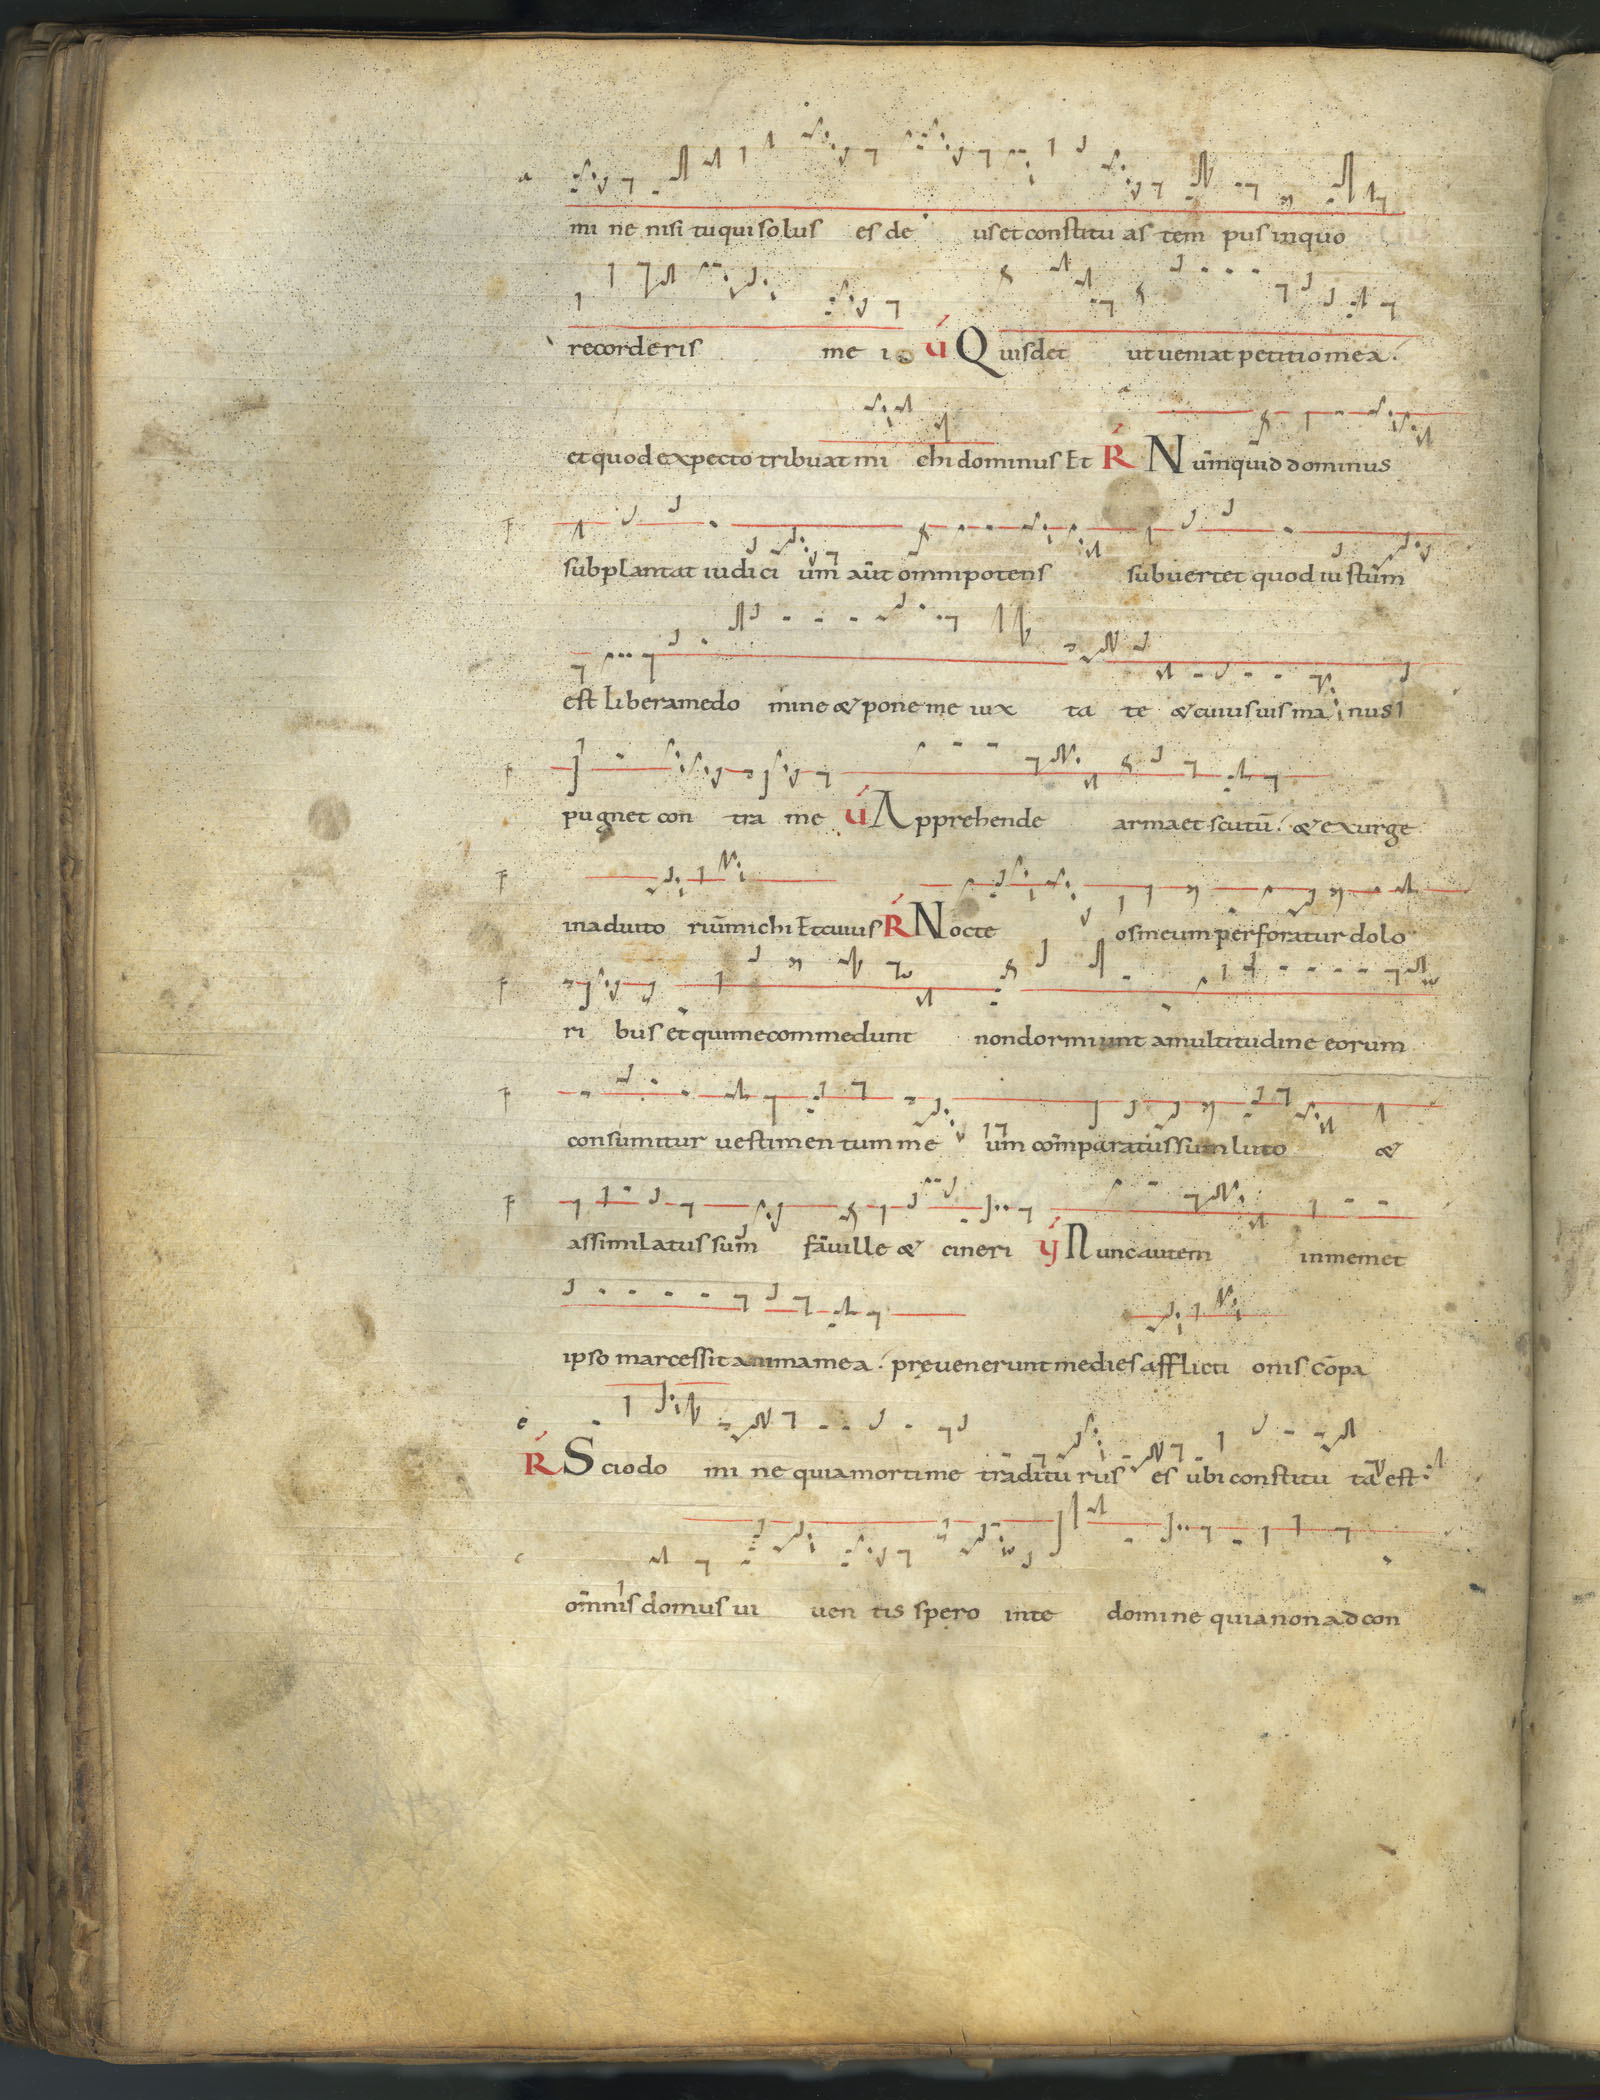 a
mi ne nisi tu qui solus es de us et constitu as tem pus in quo
recorde ris me i V́ Quis det ut ueniat petitio mea.
et quod expecto tribuat mi chi dominus Et Ŕ Nũmquid dominus
F
subplantat iudici um̄ aut omnipotens subuertet quod iustum̄
est libera me do mine & pone me iux ta te & cuiusuis ma nus
F
pugnet con tra me V́ Apprehende arma et scutū. & exurge
F
in aduto riūm michi Et cuius Ŕ Nocte os meum perforatur dolo
F
ri bus et qui me commedunt non dormiunt a multitudine eorum
F
consumitur uestimen tum me um com̄paratus sum luto &
F
assimilatus sum fauille & cineri V́ Nunc autem in memet
ipso marcessit anima mea. pręuenerunt me dies afflicti onis cōpa
e
Ŕ Scio do mi ne quia morti me traditu rus es ubi constitu ta est
c
om̄nis domus ui uen tis spero in te domine quia non ad con